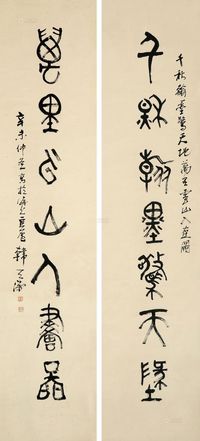 千秋翰墨驚天地萬里雲山入畫圖
千秋翰墨驚天墬
萬里雲山入畫圖
辛未仲寫於韓天衡